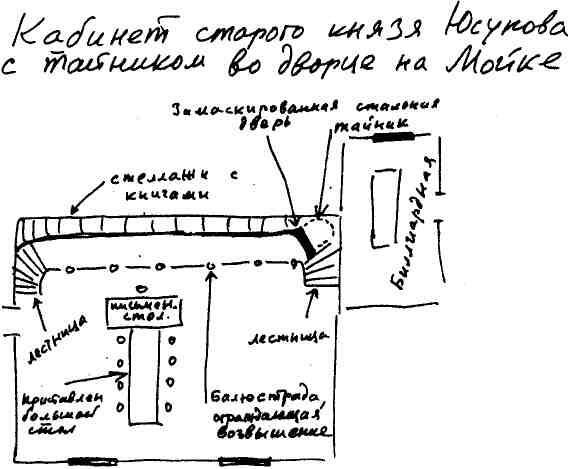 Кабинет старого князя Юсупова
с тайником во дворце на Мойке
Замаскированная стальная
дверь
тайник
стеллажи с
книгами
Биллиардная
лестница
письмен.
стол.
лестница
приставлен
большой
стол
Балюстрада,
ограждающая
возвышение